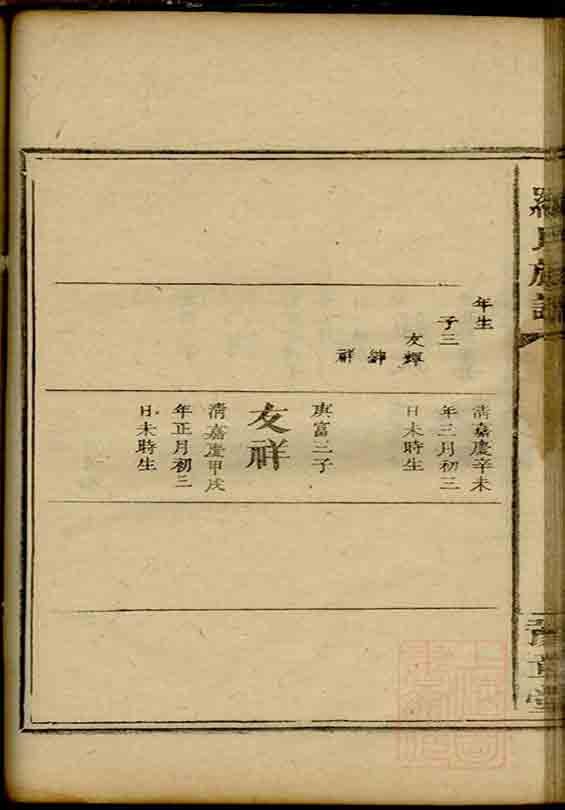 羅氏族譜
年生
子三
友輝
紳
祥
清嘉慶辛未
年三月初三
日未時生
庚富三子
友祥
清嘉慶甲戌
年正月初三
日未時生
堂